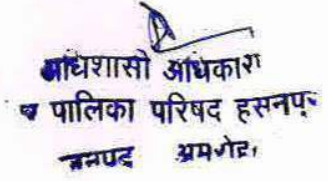 अधिशासी अधिकारी
पालिका परिषद हसनपुर
जनपद अमरोहा